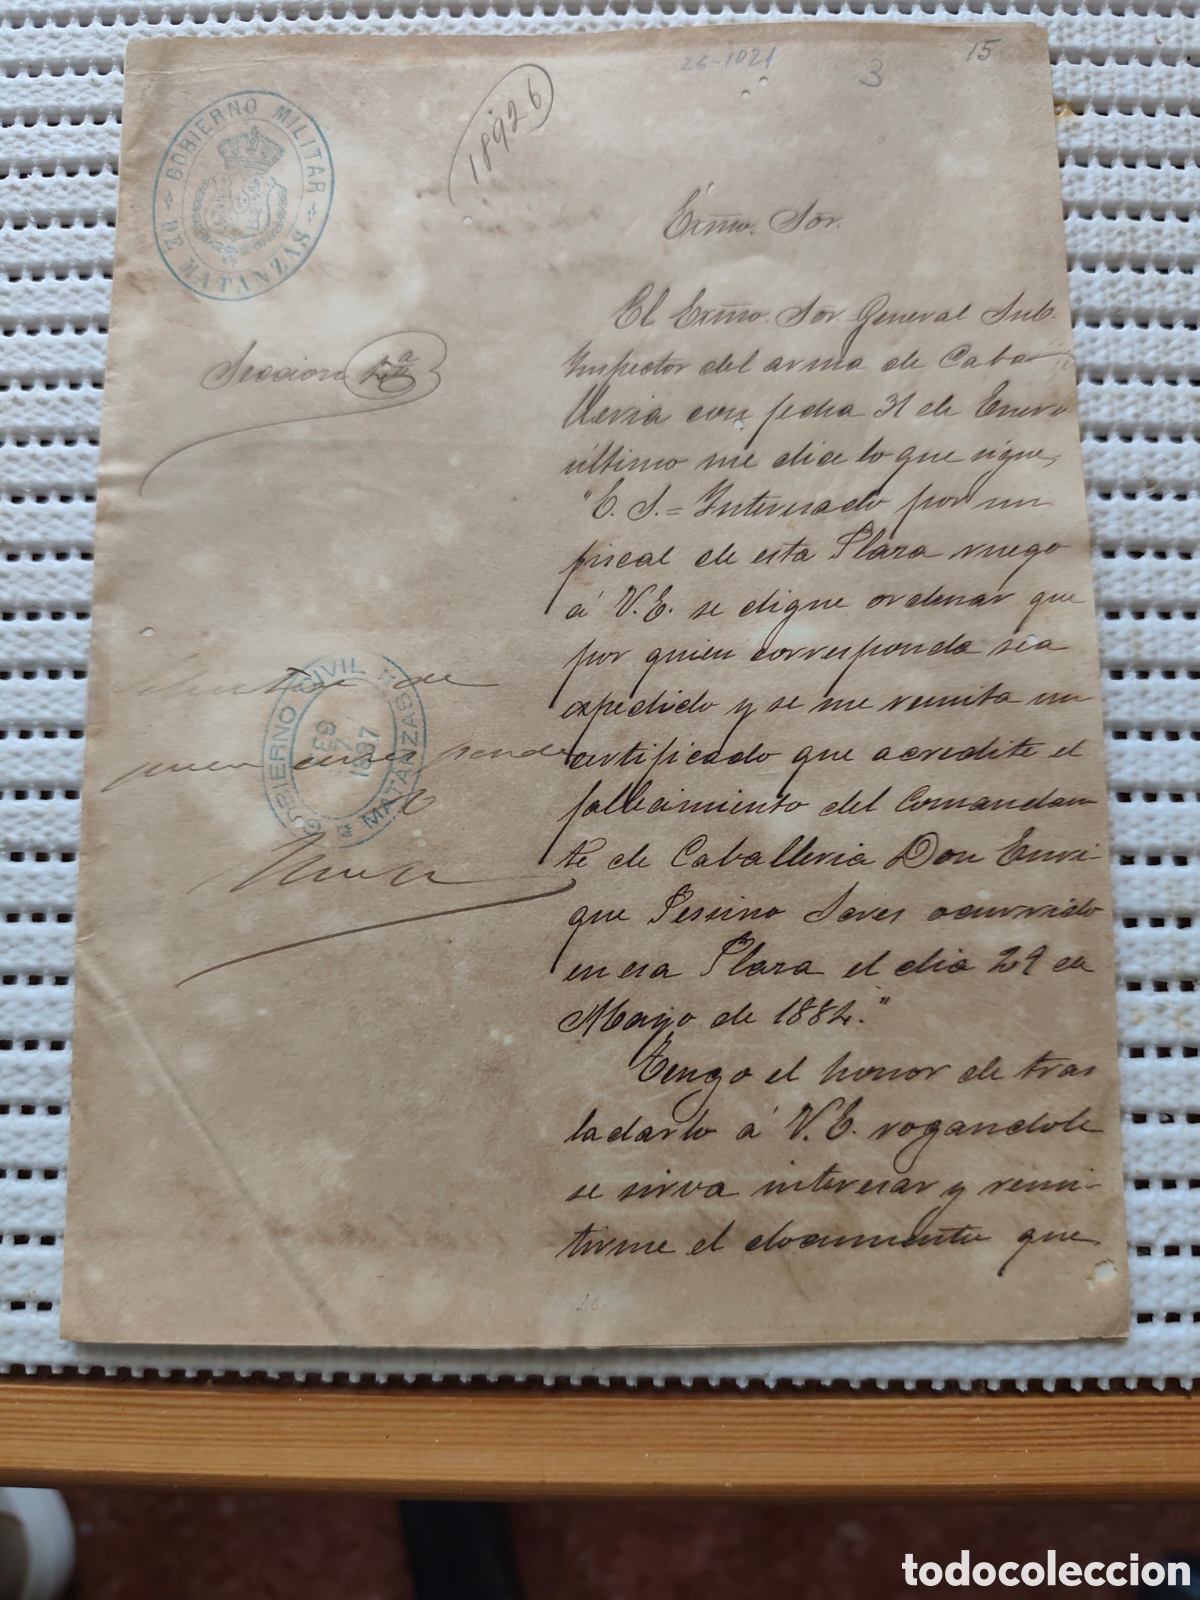 26-1021
3
15
18926
GOBIERNO MILITAR
DE MATANZAS
Exmo. Sor.
Seccion 2ª
El Exmo. Sor. General Sub.
Inspector del arma de Caba
lleria con fecha 31 de Enero
último me dice lo que sigue,
"E. S. = Interesado por un
fiscal de esta Plaza ruego
á V.E. se digne ordenar que
por quien corresponda sea
expedido y se me remita un
certificado que acredite el
fallecimiento del Comandan
te de Caballeria Don Enri-
que Pessino Seres ocurrido
en esa Plaza el dia 29 de
Mayo de 1884."
Tengo el honor de tras
ladarlo á V.E. rogandole
se sirva interesar y remi-
tirme el documento que
GOBIERNO CIVIL
FEB
7
1887
MATANZAS
todocoleccion